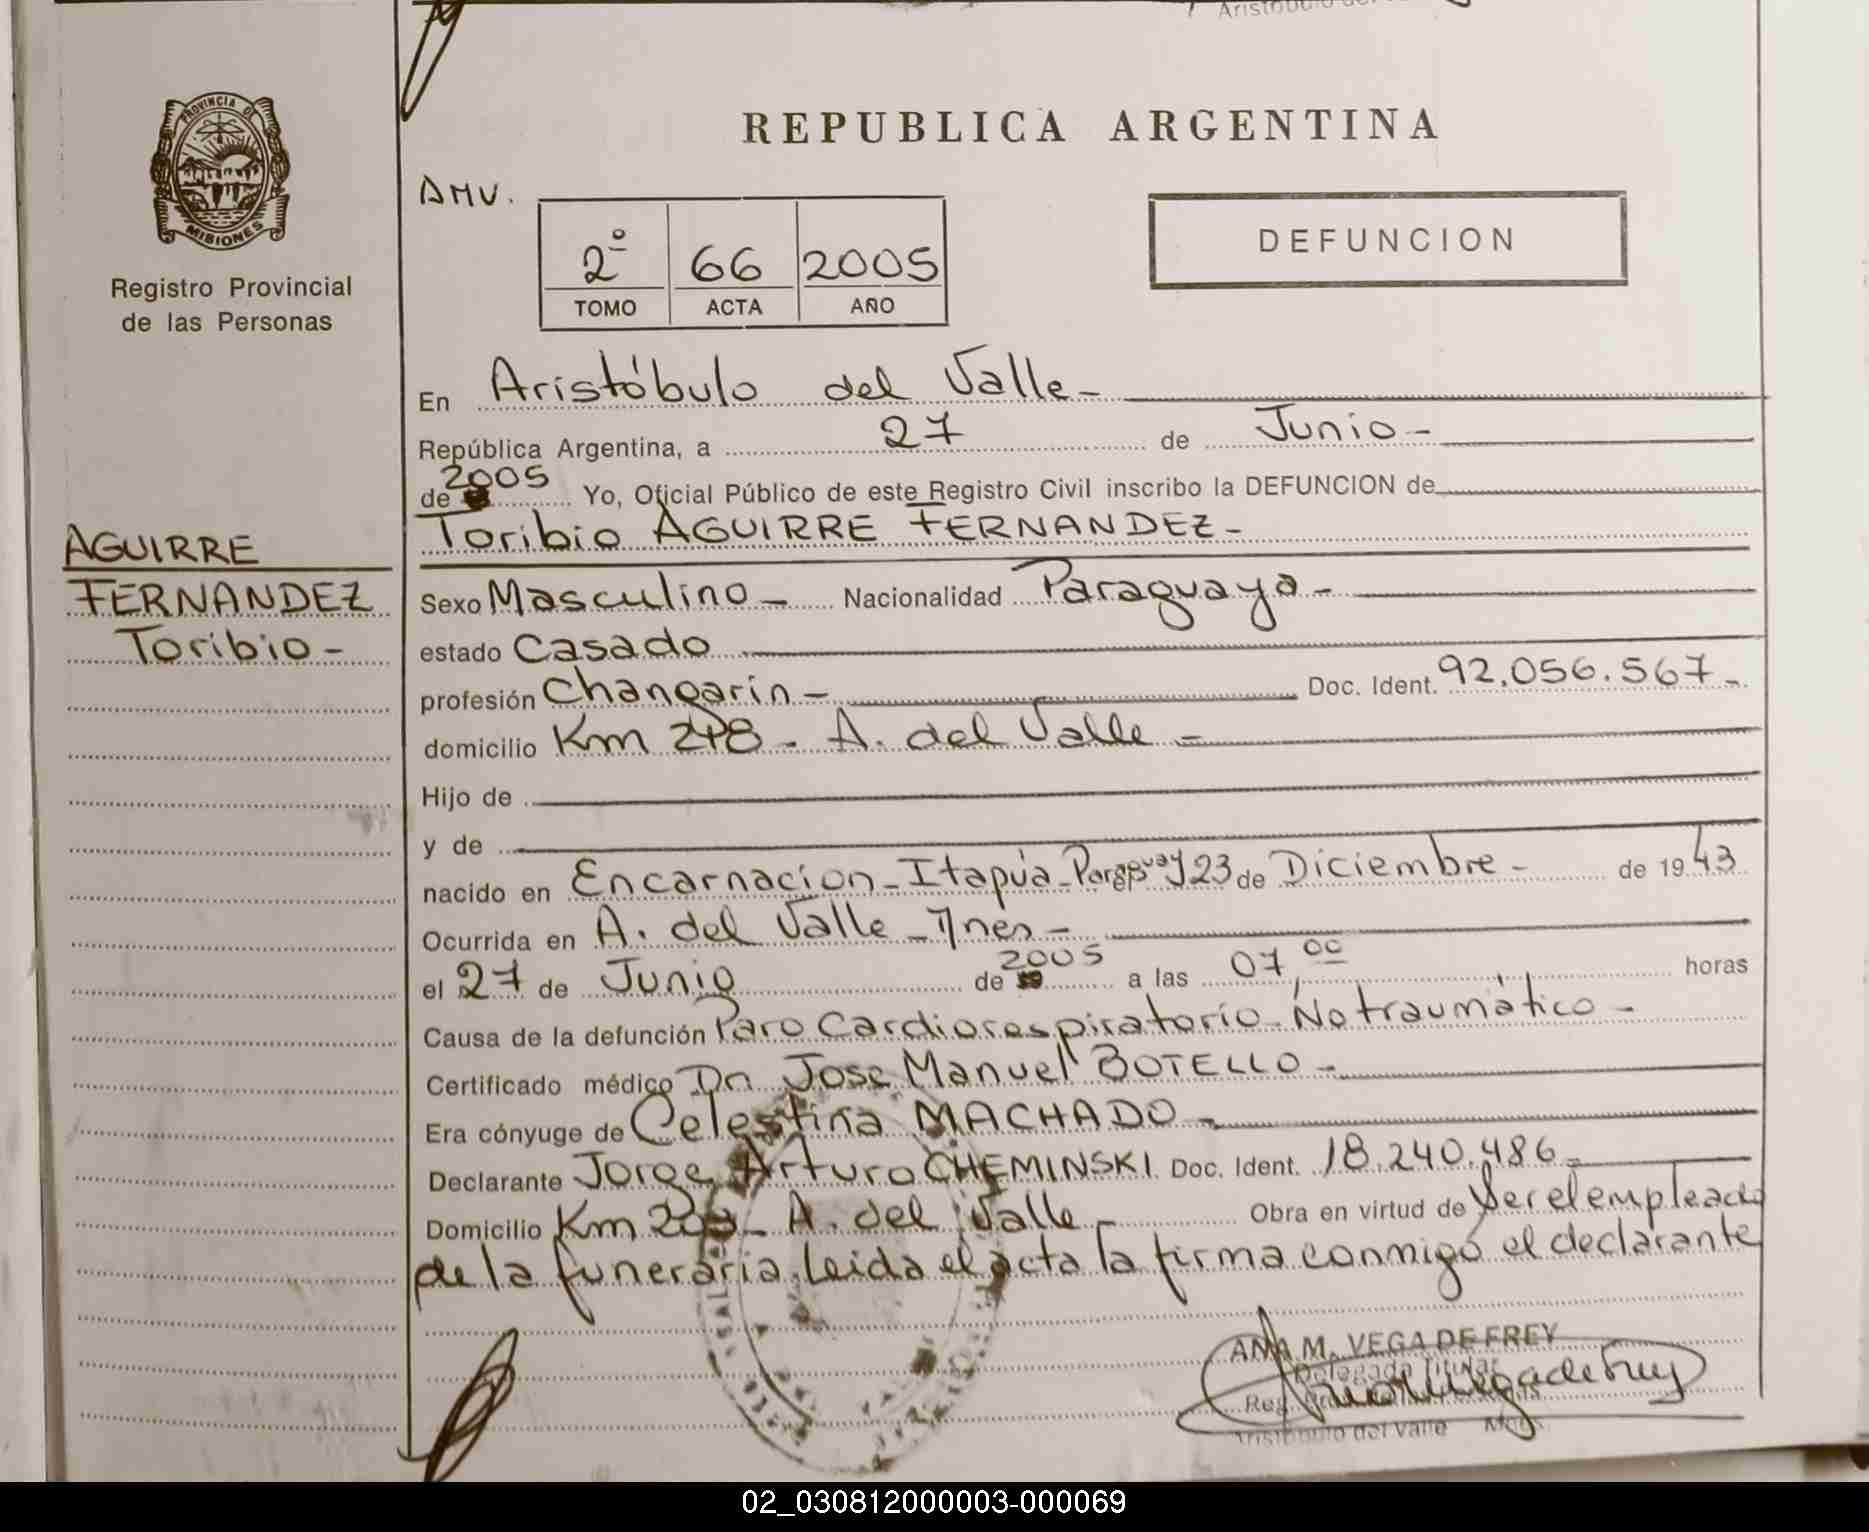 PROVINCIA DE
MISIONES
Registro Provincial
de las Personas
AGUIRRE
FERNANDEZ
Toribio -
REPUBLICA ARGENTINA
AMV.
2º 66 2005
TOMO ACTA AÑO
DEFUNCION
En Aristóbulo del Valle -
República Argentina, a 27 de Junio -
de 2005 Yo, Oficial Público de este Registro Civil inscribo la DEFUNCION de
Toribio AGUIRRE FERNANDEZ -
Sexo Masculino - Nacionalidad Paraguaya -
estado Casado
profesión Changarín - Doc. Ident. 92.056.567 -
domicilio Km 218 - A. del Valle -
Hijo de
y de
nacido en Encarnacion - Itapúa - Paraguay el 23 de Diciembre - de 1943
Ocurrida en A. del Valle - Mnes -
el 27 de Junio de 2005 a las 07,00 horas
Causa de la defunción Paro Cardiorespiratorio - No traumático -
Certificado médico Dr. Jose Manuel BOTELLO -
Era cónyuge de Celestina MACHADO -
Declarante Jorge Arturo CHEMINSKI Doc. Ident. 18.240.486 -
Domicilio Km - A. del Valle - Obra en virtud de Ser el empleado
de la funeraria. Leida el acta la firma conmigo el declarante
ANA M. VEGA DE FREY
Delegada Titular
Reg.
Aristóbulo del Valle Mnes.
02_030812000003-000069